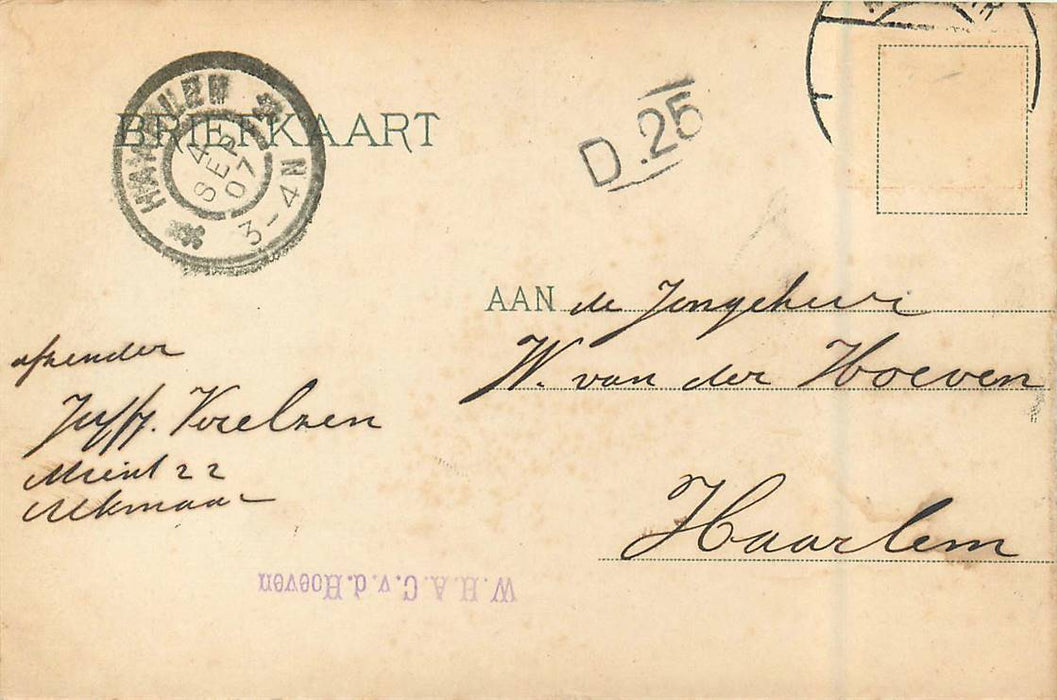 BRIEFKAART
HAARLEM
4
SEP
07
3-4N
D.25
AAN de Jongeheer
W. van der Hoeven
Haarlem
afzender
Juffr.
Mient 22
Alkmaar
W.H.A.C.v.d.Hoeven